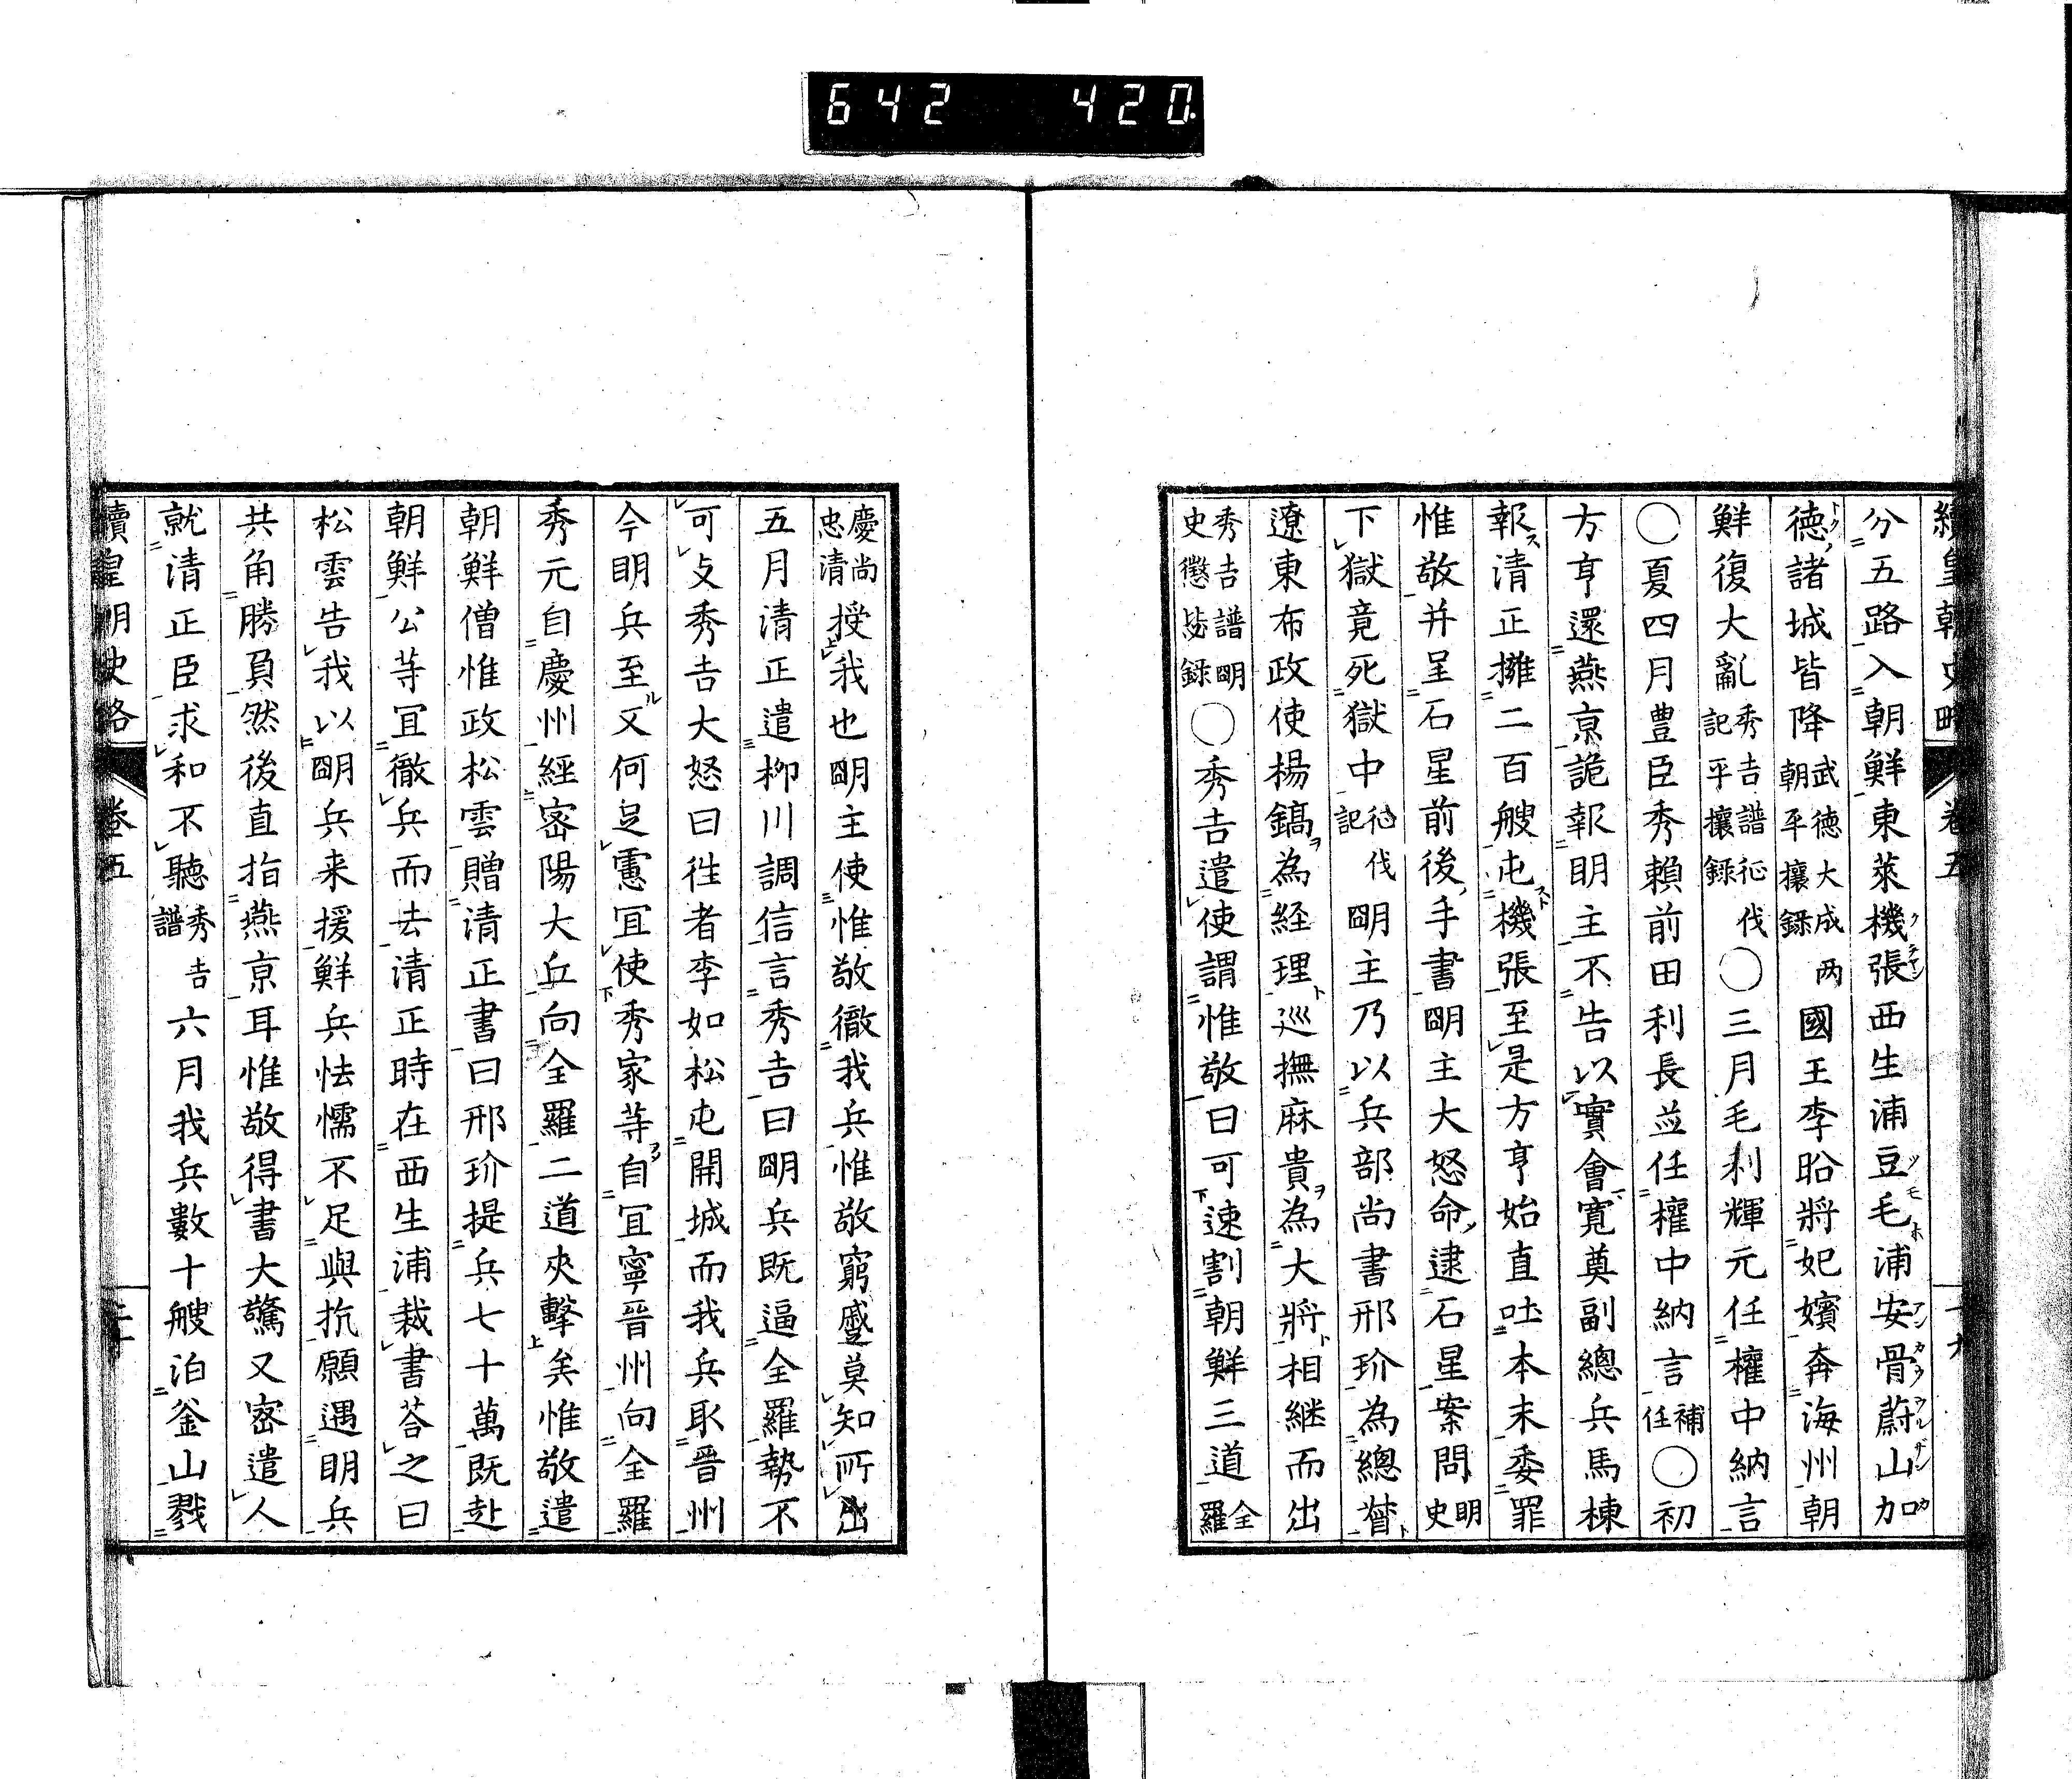 642 420.
續皇朝史略 卷五 十九
分五路入朝鮮東萊機張西生浦豆毛浦安骨蔚山加
德諸城皆降武德大成朝平攘錄两國王李昖將妃嬪奔海州朝
鮮復大亂秀吉譜征伐記平攘録〇三月毛利輝元任權中納言
〇夏四月豊臣秀賴前田利長並任權中納言補任〇初
方亨還燕京詭報明主不告以實會寛奠副總兵馬棟
報清正擁二百艘屯機張至是方亨始直吐本末委罪
惟敬并呈石星前後手書明主大怒命逮石星案問明史
下獄竟死獄中征伐記明主乃以兵部尚書邢玠為總督
遼東布政使楊鎬為経理巡撫麻貴為大將相継而出
秀吉譜明史懲毖録〇秀吉遣使謂惟敬曰可速割朝鮮三道全羅
慶尚忠清授我也明主使惟敬徹我兵惟敬窮蹙莫知所出
五月清正遣柳川調信言秀吉曰明兵既逼全羅勢不
可支秀吉大怒曰徃者李如松屯開城而我兵取晋州
今明兵至又何足慮冝使秀家等自冝寧晋州向全羅
秀元自慶州經宻陽大丘向全羅二道夾擊矣惟敬遣
朝鮮僧惟政松雲贈清正書曰邢玠提兵七十萬既赴
朝鮮公等冝徹兵而去清正時在西生浦裁書荅之曰
松雲告我以明兵来援鮮兵怯懦不足與抗願遇明兵
共角勝負然後直指燕京耳惟敬得書大驚又宻遣人
就清正臣求和不聽秀吉譜六月我兵數十艘泊釜山戮
續皇朝史略 卷五 二十